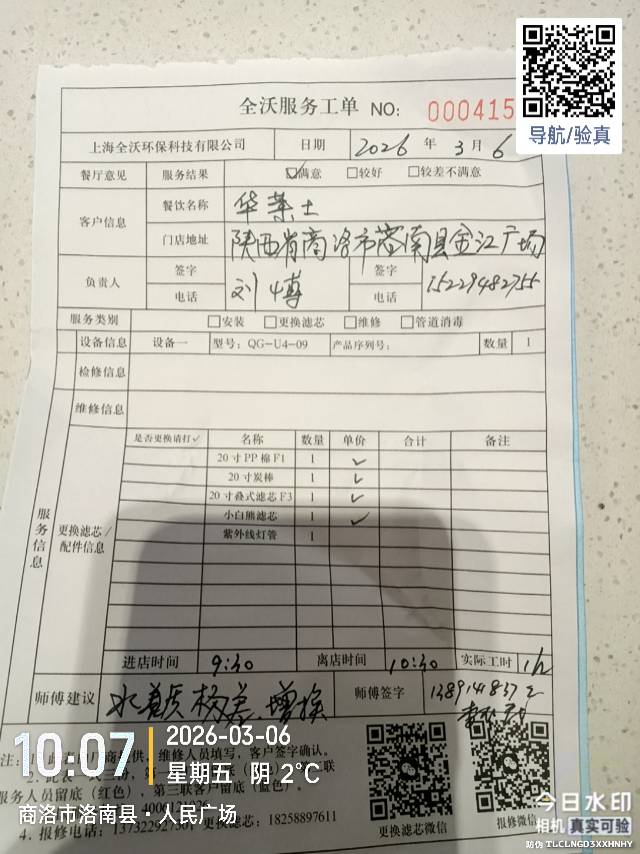 导航/验真
全沃服务工单 NO: 000415
上海全沃环保科技有限公司 日期 2026 年 3 月 6
餐厅意见 服务结果 ☑满意 □较好 □较差不满意
客户信息 餐饮名称 华莱士
门店地址 陕西省商洛市洛南县金江广场
负责人 签字 刘博 签字
电话 电话 15229482755
服务类别 □安装 □更换滤芯 □维修 □管道消毒
服务信息
设备信息 设备一 型号: QG-U4-09 产品序列号: 数量 1
检修信息
维修信息
更换滤芯/配件信息
是否更换请打✓ 名称 数量 单价 合计 备注
20寸PP棉F1 1 ✓
20寸炭棒 1 ✓
20寸叠式滤芯F3 1 ✓
小白熊滤芯 1 ✓
紫外线灯管 1
进店时间 9:30 离店时间 10:30 实际工时 1h
师傅建议 水质极差 增换 师傅签字
维修人员填写,客户签字确认。
服务人员留底(红色),第三联客户留底(蓝色)。
4. 报修电话: 13732292750 更换滤芯: 18258897611
更换滤芯微信 报修微信
10:07 2026-03-06
星期五 阴 2°C
商洛市洛南县·人民广场
今日水印
相机 真实可验
防伪 TLCLNGD3XXHNHY